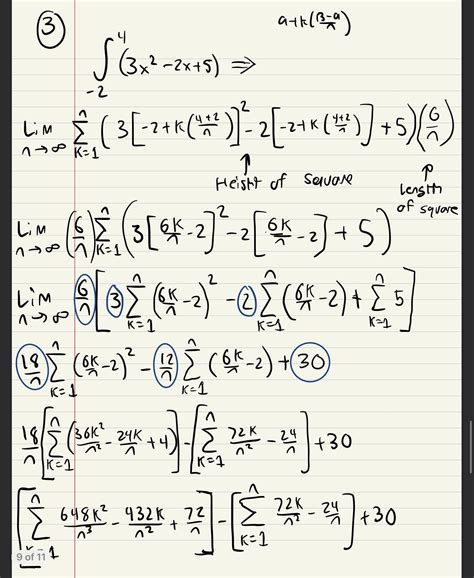 ③ a+k(B-a/n)
∫_{-2}^{4} (3x²-2x+5) ⇒
Lim n→∞ Σ_{K=1}^{n} (3[-2+K(4+2/n)]² - 2[-2+K(4+2/n)] + 5)(6/n)
↑ ↑
Height of square Length
of square
Lim n→∞ (6/n) Σ_{K=1}^{n} (3[6K/n - 2]² - 2[6K/n - 2] + 5)
Lim n→∞ 6/n [3 Σ_{K=1}^{n} (6K/n - 2)² - 2 Σ_{K=1}^{n} (6K/n - 2) + Σ_{K=1}^{n} 5]
18/n Σ_{K=1}^{n} (6K/n - 2)² - 12/n Σ_{K=1}^{n} (6K/n - 2) + 30
18/n [Σ_{K=1}^{n} (36K²/n² - 24K/n + 4)] - [Σ_{K=1}^{n} 72K/n² - 24/n] + 30
[Σ_{K=1}^{n} 648K²/n³ - 432K/n² + 72/n] - [Σ_{K=1}^{n} 72K/n² - 24/n] + 30
9 of 11